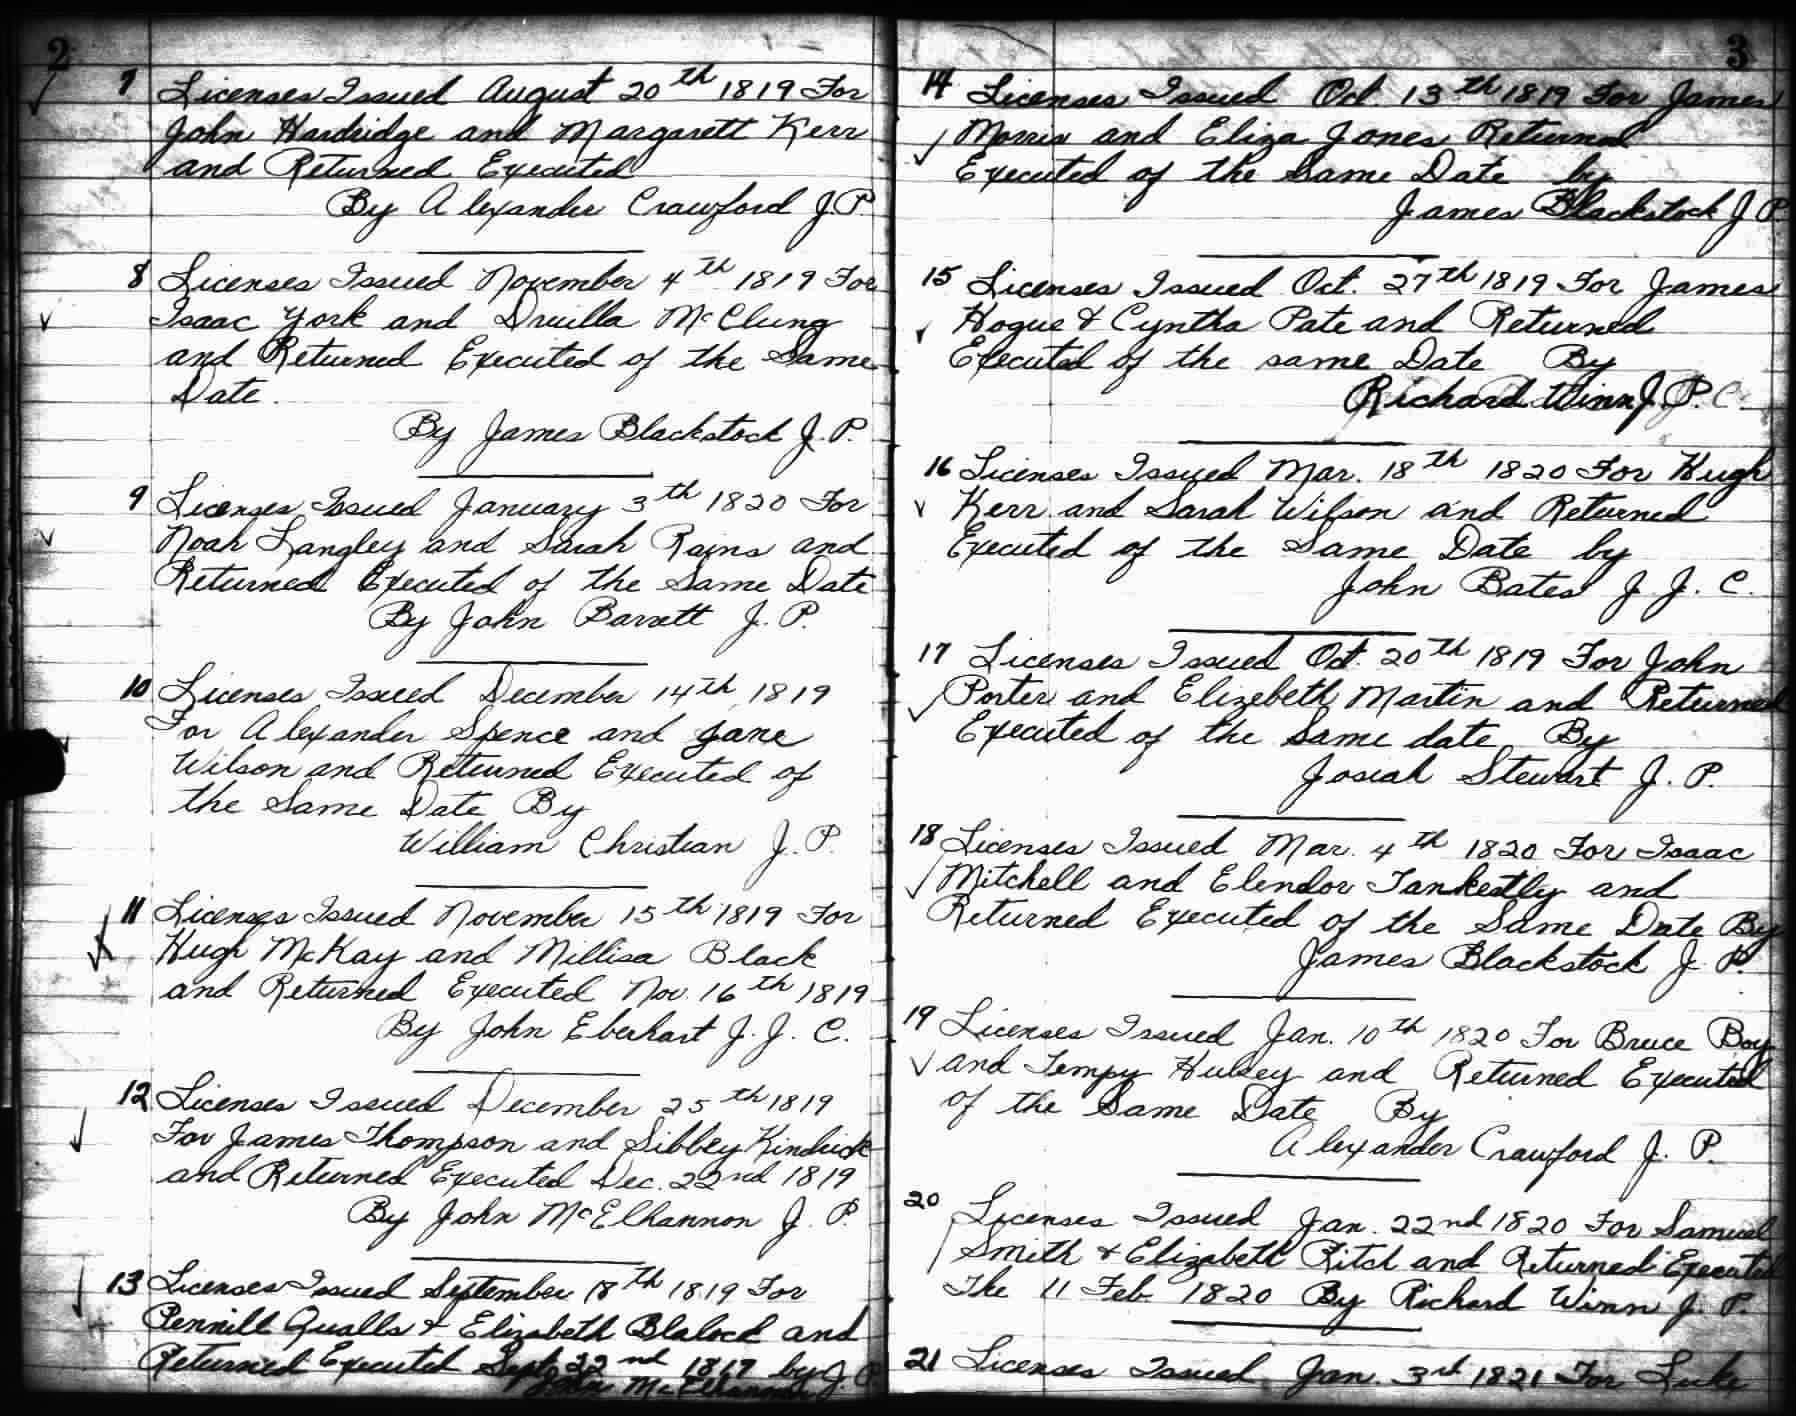 2
7 Licenses Issued August 20th 1819 For
John Hardridge and Margarett Kerr
and Returned Executed
By Alexander Crawford J.P.
8 Licenses Issued November 4th 1819 For
Isaac York and Druilla McClung
and Returned Executed of the Same
Date.
By James Blackstock J.P.
9 Licenses Issued January 3th 1820 For
Noah Langley and Sarah Rains and
Returned Executed of the Same Date
By John Barrett J.P.
10 Licenses Issued December 14th 1819
For Alexander Spence and Jane
Wilson and Returned Executed of
the Same Date By
William Christian J.P.
11 Licenses Issued November 15th 1819 For
Hugh McKay and Millisa Black
and Returned Executed Nov. 16th 1819
By John Eberhart J.J.C.
12 Licenses Issued December 25th 1819
For James Thompson and Sibbey Kindrick
and Returned Executed Dec. 22nd 1819
By John McElhannon J.P.
13 Licenses Issued September 18th 1819 For
Pennill Qualls & Elizabeth Blalock and
Returned Executed Sept 22nd 1819 by J.P.
John McElhannon
3
14 Licenses Issued Oct. 13th 1819 For James
Morris and Eliza Jones Returned
Executed of the Same Date by
James Blackstock J P.
15 Licenses Issued Oct. 27th 1819 For James
Hogue & Cyntha Pate and Returned
Executed of the same Date By
Richard Winn J.P.C.
16 Licenses Issued Mar. 18th 1820 For Hugh
Kerr and Sarah Wilson and Returned
Executed of the Same Date by
John Bates J J. C.
17 Licenses Issued Oct. 20th 1819 For John
Porter and Elizebeth Martin and Returned
Executed of the Same date By
Josiah Stewart J.P.
18 Licenses Issued Mar. 4th 1820 For Isaac
Mitchell and Elendor Tankestley and
Returned Executed of the Same Date By
James Blackstock J P.
19 Licenses Issued Jan. 10th 1820 For Bruce Boy
and Tempy Hulsey and Returned Executed
of the Same Date By
Alexander Crawford J.P.
20 Licenses Issued Jan. 22nd 1820 For Samuel
Smith & Elizabeth Ritch and Returned Executed
The 11 Feb. 1820 By Richard Winn J.P.
21 Licenses Issued Jan. 3rd 1821 For Luke